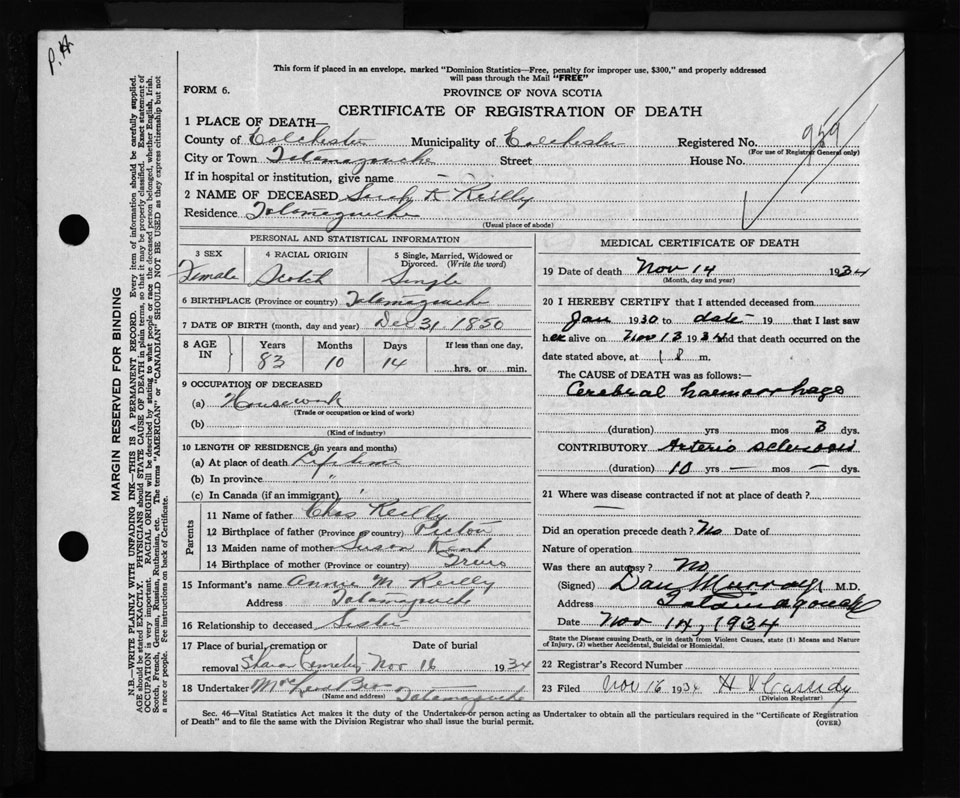 P.H
This form if placed in an envelope, marked "Dominion Statistics—Free, penalty for improper use, $300," and properly addressed
will pass through the Mail "FREE"
FORM 6.
PROVINCE OF NOVA SCOTIA
CERTIFICATE OF REGISTRATION OF DEATH
1 PLACE OF DEATH—
County of Colchester Municipality of Colchester Registered No. 939
(For use of Registrar General only)
City or Town Tatamagouche Street House No.
If in hospital or institution, give name —
2 NAME OF DECEASED Sarah K Reilly
Residence Tatamagouche
(Usual place of abode)
PERSONAL AND STATISTICAL INFORMATION
3 SEX 4 RACIAL ORIGIN 5 Single, Married, Widowed or
Divorced. (Write the word)
Female Scotch Single
6 BIRTHPLACE (Province or country) Tatamagouche
7 DATE OF BIRTH (month, day and year) Dec 31. 1850
8 AGE IN Years Months Days If less than one day,
83 10 14 hrs. or min.
9 OCCUPATION OF DECEASED
(a) Housework
(Trade or occupation or kind of work)
(b)
(Kind of industry)
10 LENGTH OF RESIDENCE (in years and months)
(a) At place of death Life time
(b) In province "
(c) In Canada (if an immigrant) "
Parents
11 Name of father Chas Reilly
12 Birthplace of father (Province or country) Pictou
13 Maiden name of mother Susan Kent
14 Birthplace of mother (Province or country) Truro
15 Informant's name Annie M Reilly
Address Tatamagouche
16 Relationship to deceased Sister
17 Place of burial, cremation or Date of burial
removal Sharon Cemetery Nov 16 1934
18 Undertaker Bro Tatamagouche
(Name and address)
MEDICAL CERTIFICATE OF DEATH
19 Date of death Nov 14 1934
(Month, day and year)
20 I HEREBY CERTIFY that I attended deceased from
Jan 1930 to date 19 that I last saw
her alive on Nov 13 1934 and that death occurred on the
date stated above, at m.
The CAUSE of DEATH was as follows:—
Cerebral haemorrhage
(duration) yrs mos 3 dys.
CONTRIBUTORY Arterio sclerosis
(duration) 10 yrs — mos — dys.
21 Where was disease contracted if not at place of death?
—
Did an operation precede death? No Date of
Nature of operation
Was there an autopsy? No
(Signed) Dan Murray M.D.
Address Tatamagouche
Date Nov 14, 1934
State the Disease causing Death, or in death from Violent Causes, state (1) Means and Nature
of Injury, (2) whether Accidental, Suicidal or Homicidal.
22 Registrar's Record Number
23 Filed Nov 16 1934 Cassidy
(Division Registrar)
Sec. 46—Vital Statistics Act makes it the duty of the Undertaker or person acting as Undertaker to obtain all the particulars required in the "Certificate of Registration
of Death" and to file the same with the Division Registrar who shall issue the burial permit.
(OVER)
MARGIN RESERVED FOR BINDING
N.B.—WRITE PLAINLY WITH UNFADING INK—THIS IS A PERMANENT RECORD. Every item of information should be carefully supplied.
AGE should be stated EXACTLY. PHYSICIANS should STATE CAUSE OF DEATH in plain terms, so that it may be properly classified. Exact statement of
OCCUPATION is very important. RACIAL ORIGIN will be described by stating to what people or race the deceased person belonged, whether English, Irish,
Scotch, French, German, Russian, Ruthenian, etc. The terms "AMERICAN" or "CANADIAN" SHOULD NOT BE USED as they express citizenship but not
a race or people. See instructions on back of Certificate.